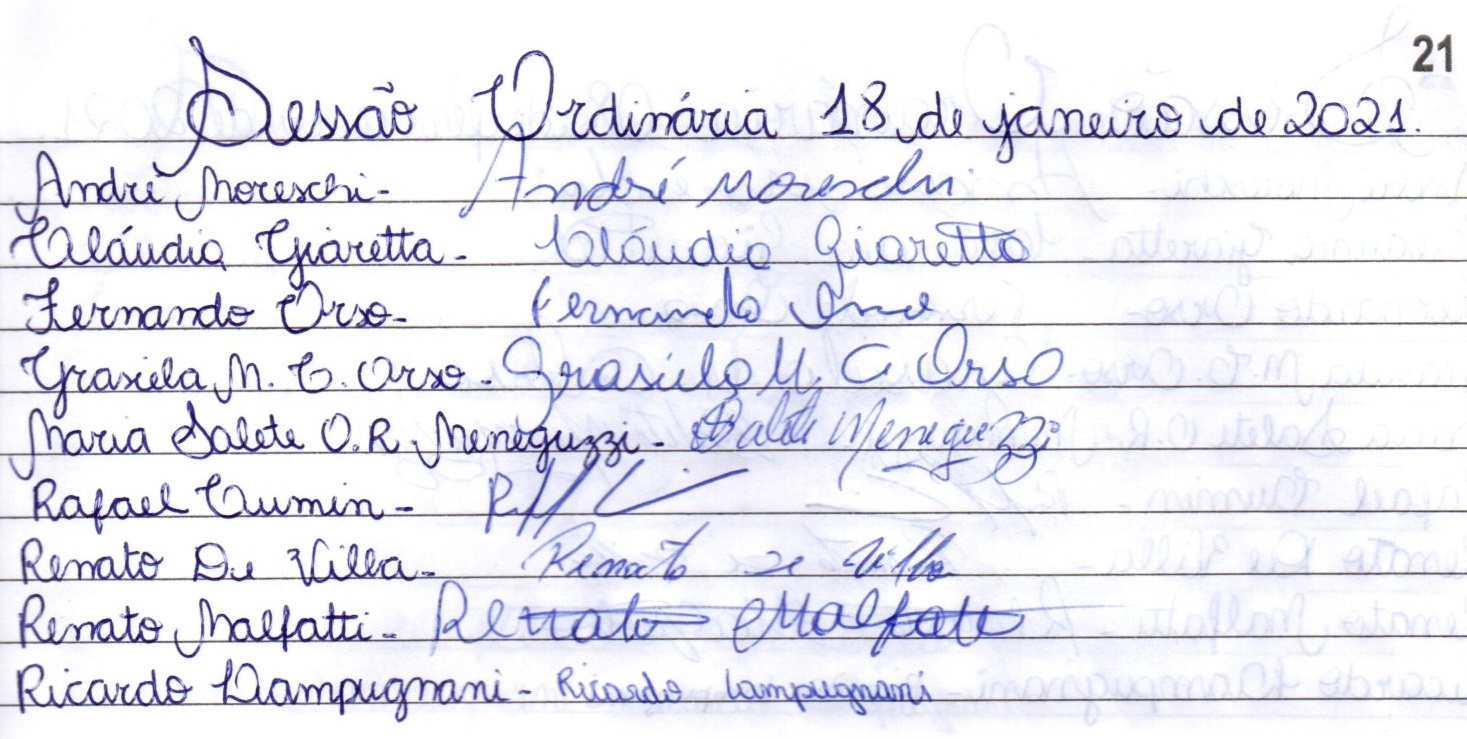 21
Sessão Ordinária 18 de janeiro de 2021.
André Moreschi - André Moreschi
Cláudio Giaretta - Cláudio Giaretta
Fernando Orso - Fernando Orso
Grasiela M. C. Orso - Grasiela M. C. Orso
Maria Salete O.R. Meneguzzi - Salete Meneguzzi
Rafael Cumin -
Renato De Villa - Renato de Villa
Renato Malfatti - Renato Malfatti
Ricardo Lampugnani - Ricardo Lampugnani